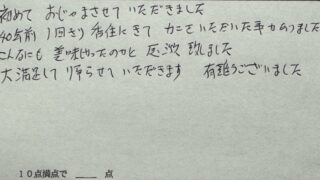 初めて おじゃまさせていただきました
40年前 1回きり 香住にきて カニをいただいた事がありました
こんなにも 美味しかったのかと 感激 致しました
大満足して 帰らせていただきます 有難うございました
10点満点で ____ 点